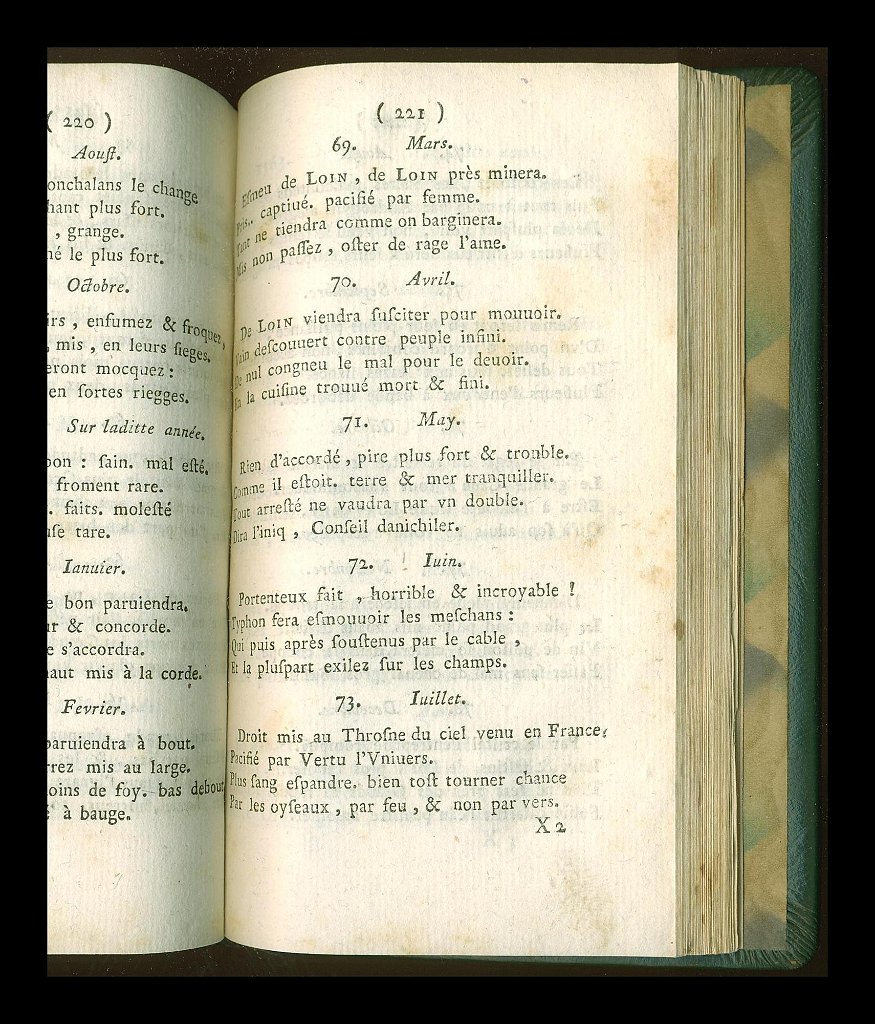 ( 220 )
Aouſt.
onchalans le change
hant plus fort.
, grange.
é le plus fort.
Octobre.
irs , enfumez & froquez,
, mis , en leurs ſieges.
eront mocquez :
en ſortes riegges.
Sur laditte année.
bon : ſain. mal eſté.
froment rare.
. faits. moleſté
uſe tare.
Ianuier.
e bon paruiendra.
ur & concorde.
e s'accordra.
haut mis à la corde.
Fevrier.
paruiendra à bout.
rrez mis au large.
oins de foy. bas debout
à bauge.
( 221 )
69. Mars.
Eſmeu de LOIN , de LOIN près minera.
Pris. captiué. pacifié par femme.
Tant ne tiendra comme on barginera.
Mis non paſſez , oſter de rage l'ame.
70. Avril.
De LOIN viendra ſuſciter pour mouuoir.
Vain deſcouuert contre peuple infini.
De nul congneu le mal pour le deuoir.
En la cuiſine trouué mort & fini.
71. May.
Rien d'accordé , pire plus fort & trouble.
Comme il eſtoit. terre & mer tranquiller.
Tout arreſté ne vaudra par vn double.
Dira l'iniq , Conſeil danichiler.
72. Iuin.
Portenteux fait , horrible & incroyable !
Typhon fera eſmouuoir les meſchans :
Qui puis après ſouſtenus par le cable ,
Et la pluſpart exilez ſur les champs.
73. Iuillet.
Droit mis au Throſne du ciel venu en France,
Pacifié par Vertu l'Vniuers.
Plus ſang eſpandre. bien toſt tourner chance
Par les oyſeaux , par feu , & non par vers.
X 2